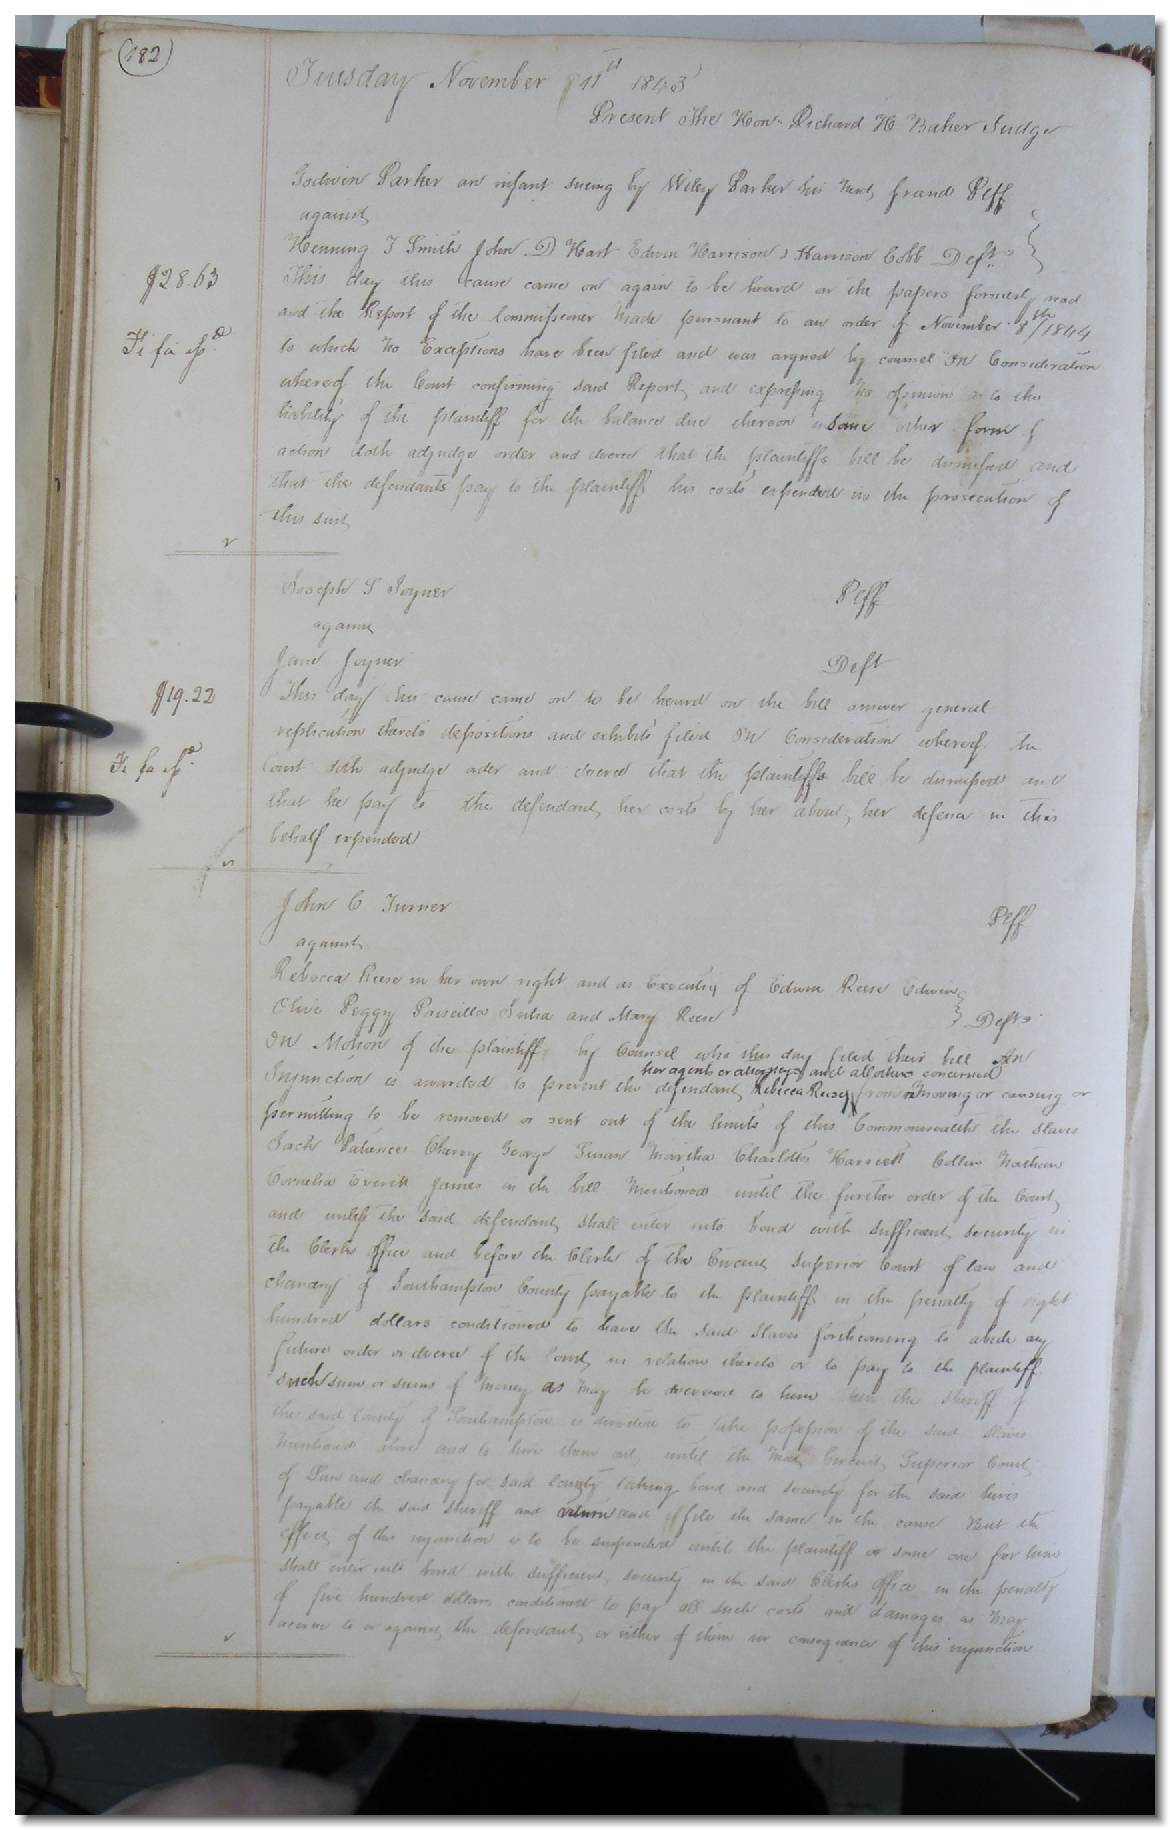 (182)
Tuesday November 11th 1845
Present The Hon. Richard H Baker Judge
Godwin Parker an infant sueing by Wiley Parker his next friend Plff
against
Henning T Smith John D Hart Edwin Harrison & Harrison Cobb Defts
$28.63
This day this cause came on again to be heard on the papers formerly read
and the Report of the Commissioner made pursuant to an order of November 8th/1844
Fi fa issd
to which no Exceptions have been filed and was argued by counsel On Consideration
whereof the Court confirming said Report and expressing no opinion as to the
liability of the plaintiff for the balance due thereon in some other form of
action doth adjudge order and decree that the plaintiffs bill be dismissed and
that the defendants pay to the plaintiff his costs expended in the prosecution of
this suit
Joseph S Joyner Plff
against
Jane Joyner Deft
$19.22
This day this cause came on to be heard on the bill answer general
replication thereto depositions and exhibits filed On Consideration whereof the
Fi fa issd
Court doth adjudge order and decree that the plaintiffs bill be dismissed and
that he pay to the defendant her costs by her about her defence in this
behalf expended
John C Turner Plff
against
Rebecca Reese in her own right and as Executrix of Edwin Reese Edwin
Olive Peggy Priscilla Julia and Mary Reese Defts
On Motion of the plaintiff by Counsel who this day filed their bill An
her agents or attorneys and all others concerned
Injunction is awarded to prevent the defendant Rebecca Reese from removing or causing or
permitting to be removed or sent out of the limits of this Commonwealth the slaves
Jack Patience Cherry George Susan Martha Charlotte Harriett Collin Nathan
Cornelia Everitt James in the bill mentioned until the further order of the Court
and unless the said defendant shall enter into bond with sufficient security in
the Clerks Office and before the Clerk of the Circuit Superior Court of law and
chancery of Southampton County payable to the plaintiff in the penalty of eight
hundred dollars conditioned to have the said slaves forthcoming to abide any
future order or decree of the Court in relation thereto or to pay to the plaintiff
such sum or sums of money as may be decreed to him then the sheriff of
the said County of Southampton is directed to take possession of the said slaves
mentioned above and to hire them out until the next Circuit Superior Court
of Law and chancery for said county taking bond and security for the said hires
payable the said sheriff and return and file the same in the cause But the
effect of this injunction is to be suspended until the plaintiff or some one for him
shall enter into bond with sufficient security in the said Clerks office in the penalty
of five hundred dollars conditioned to pay all such costs and damages as may
accrue to or against the defendant or either of them in consequence of this injunction